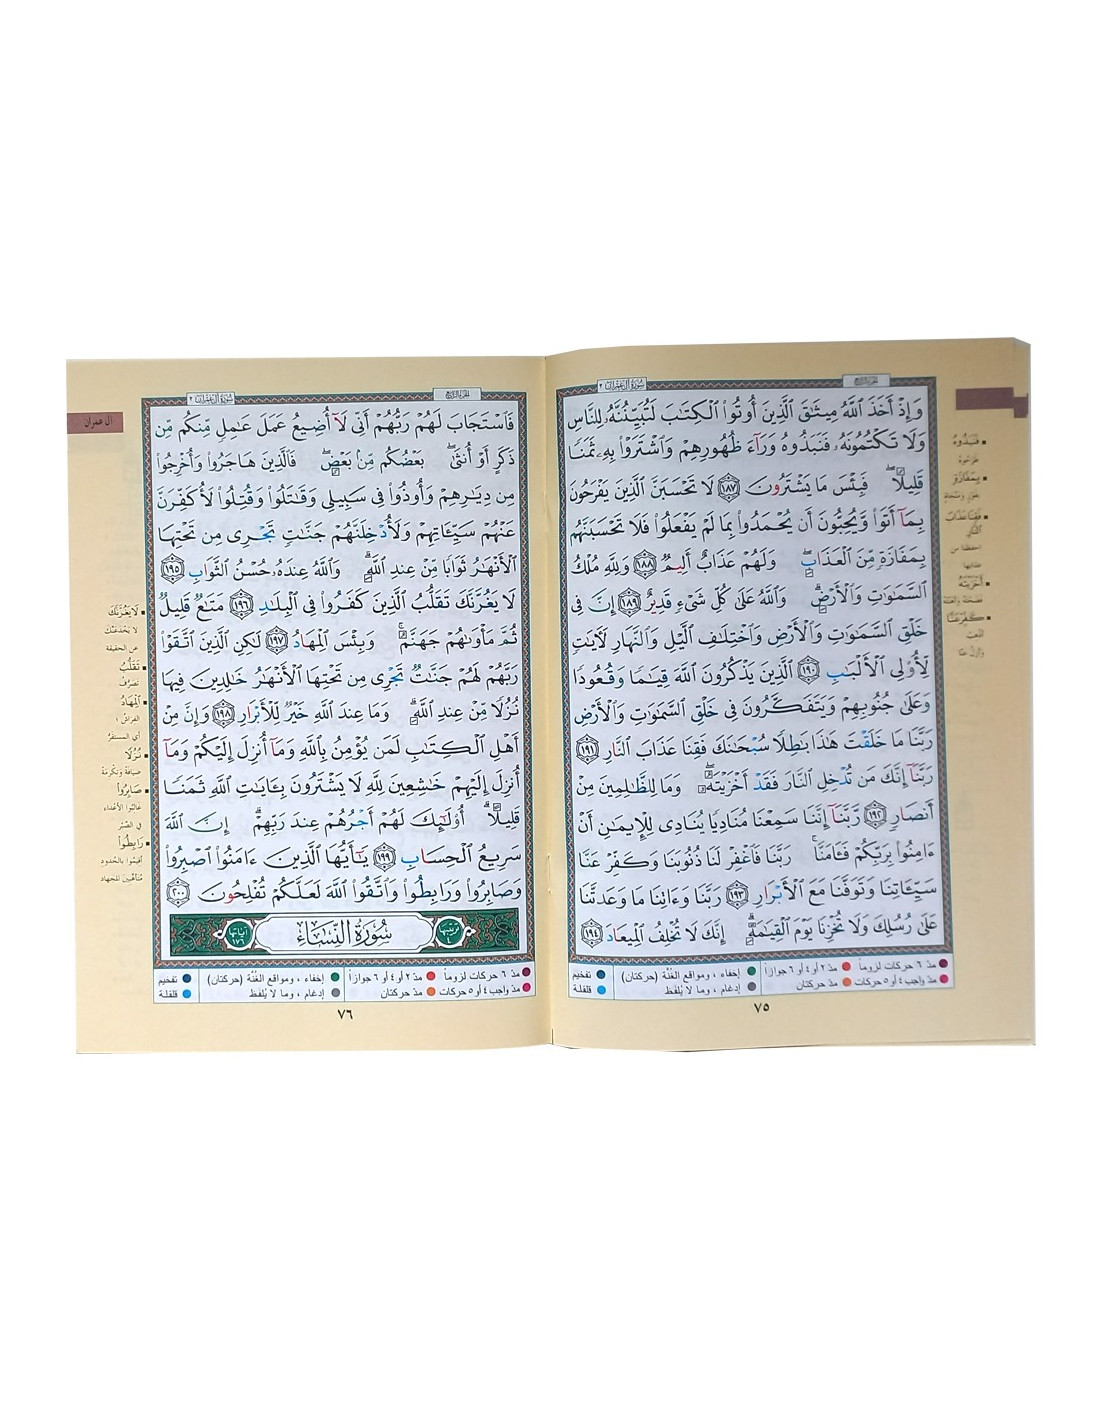 الجزء الرابع
سورة آل عمران ٣
وَإِذْ أَخَذَ ٱللَّهُ مِيثَٰقَ ٱلَّذِينَ أُوتُوا۟ ٱلْكِتَٰبَ لَتُبَيِّنُنَّهُۥ لِلنَّاسِ
وَلَا تَكْتُمُونَهُۥ فَنَبَذُوهُ وَرَآءَ ظُهُورِهِمْ وَٱشْتَرَوْا۟ بِهِۦ ثَمَنًا
قَلِيلًا ۖ فَبِئْسَ مَا يَشْتَرُونَ ١٨٧ لَا تَحْسَبَنَّ ٱلَّذِينَ يَفْرَحُونَ
بِمَآ أَتَوا۟ وَّيُحِبُّونَ أَن يُحْمَدُوا۟ بِمَا لَمْ يَفْعَلُوا۟ فَلَا تَحْسَبَنَّهُم
بِمَفَازَةٍ مِّنَ ٱلْعَذَابِ ۖ وَلَهُمْ عَذَابٌ أَلِيمٌ ١٨٨ وَلِلَّهِ مُلْكُ
ٱلسَّمَٰوَٰتِ وَٱلْأَرْضِ ۗ وَٱللَّهُ عَلَىٰ كُلِّ شَىْءٍ قَدِيرٌ ١٨٩ إِنَّ فِى
خَلْقِ ٱلسَّمَٰوَٰتِ وَٱلْأَرْضِ وَٱخْتِلَٰفِ ٱلَّيْلِ وَٱلنَّهَارِ لَءَايَٰتٍ
لِّأُو۟لِى ٱلْأَلْبَٰبِ ١٩٠ ٱلَّذِينَ يَذْكُرُونَ ٱللَّهَ قِيَٰمًا وَقُعُودًا
وَعَلَىٰ جُنُوبِهِمْ وَيَتَفَكَّرُونَ فِى خَلْقِ ٱلسَّمَٰوَٰتِ وَٱلْأَرْضِ
رَبَّنَا مَا خَلَقْتَ هَٰذَا بَٰطِلًا سُبْحَٰنَكَ فَقِنَا عَذَابَ ٱلنَّارِ ١٩١
رَبَّنَآ إِنَّكَ مَن تُدْخِلِ ٱلنَّارَ فَقَدْ أَخْزَيْتَهُۥ ۖ وَمَا لِلظَّٰلِمِينَ مِنْ
أَنصَارٍ ١٩٢ رَّبَّنَآ إِنَّنَا سَمِعْنَا مُنَادِيًا يُنَادِى لِلْإِيمَٰنِ أَنْ
ءَامِنُوا۟ بِرَبِّكُمْ فَـَٔامَنَّا ۚ رَبَّنَا فَٱغْفِرْ لَنَا ذُنُوبَنَا وَكَفِّرْ عَنَّا
سَيِّـَٔاتِنَا وَتَوَفَّنَا مَعَ ٱلْأَبْرَارِ ١٩٣ رَبَّنَا وَءَاتِنَا مَا وَعَدتَّنَا
عَلَىٰ رُسُلِكَ وَلَا تُخْزِنَا يَوْمَ ٱلْقِيَٰمَةِ ۗ إِنَّكَ لَا تُخْلِفُ ٱلْمِيعَادَ ١٩٤
مدّ ٦ حركات لزوماً مدّ ٢ أو ٤ أو ٦ جوازاً إخفاء ، ومواقع الغُنَّة (حركتان) تفخيم
مدّ واجب ٤ أو ٥ حركات مدّ حركتان إدغام ، وما لا يُلفظ قلقلة
٧٥
فَنَبَذُوهُ
طرحوه
بِمَفَازَةٍ
بفوز ومنجاة
فَقِنَا عَذَابَ
ٱلنَّارِ
احفظنا من
عذابها
أَخْزَيْتَهُ
كَفِّرْ عَنَّا
أذهب
وأزل عنّا
الجزء الرابع
سورة آل عمران ٣
آل عمران
فَٱسْتَجَابَ لَهُمْ رَبُّهُمْ أَنِّى لَآ أُضِيعُ عَمَلَ عَٰمِلٍ مِّنكُم مِّن
ذَكَرٍ أَوْ أُنثَىٰ ۖ بَعْضُكُم مِّنۢ بَعْضٍ ۖ فَٱلَّذِينَ هَاجَرُوا۟ وَأُخْرِجُوا۟
مِن دِيَٰرِهِمْ وَأُوذُوا۟ فِى سَبِيلِى وَقَٰتَلُوا۟ وَقُتِلُوا۟ لَأُكَفِّرَنَّ
عَنْهُمْ سَيِّـَٔاتِهِمْ وَلَأُدْخِلَنَّهُمْ جَنَّٰتٍ تَجْرِى مِن تَحْتِهَا
ٱلْأَنْهَٰرُ ثَوَابًا مِّنْ عِندِ ٱللَّهِ ۗ وَٱللَّهُ عِندَهُۥ حُسْنُ ٱلثَّوَابِ ١٩٥
لَا يَغُرَّنَّكَ تَقَلُّبُ ٱلَّذِينَ كَفَرُوا۟ فِى ٱلْبِلَٰدِ ١٩٦ مَتَٰعٌ قَلِيلٌ
ثُمَّ مَأْوَىٰهُمْ جَهَنَّمُ ۚ وَبِئْسَ ٱلْمِهَادُ ١٩٧ لَٰكِنِ ٱلَّذِينَ ٱتَّقَوْا۟
رَبَّهُمْ لَهُمْ جَنَّٰتٌ تَجْرِى مِن تَحْتِهَا ٱلْأَنْهَٰرُ خَٰلِدِينَ فِيهَا
نُزُلًا مِّنْ عِندِ ٱللَّهِ ۗ وَمَا عِندَ ٱللَّهِ خَيْرٌ لِّلْأَبْرَارِ ١٩٨ وَإِنَّ مِنْ
أَهْلِ ٱلْكِتَٰبِ لَمَن يُؤْمِنُ بِٱللَّهِ وَمَآ أُنزِلَ إِلَيْكُمْ وَمَآ
أُنزِلَ إِلَيْهِمْ خَٰشِعِينَ لِلَّهِ لَا يَشْتَرُونَ بِـَٔايَٰتِ ٱللَّهِ ثَمَنًا
قَلِيلًا ۗ أُو۟لَٰٓئِكَ لَهُمْ أَجْرُهُمْ عِندَ رَبِّهِمْ ۗ إِنَّ ٱللَّهَ
سَرِيعُ ٱلْحِسَابِ ١٩٩ يَٰٓأَيُّهَا ٱلَّذِينَ ءَامَنُوا۟ ٱصْبِرُوا۟
وَصَابِرُوا۟ وَرَابِطُوا۟ وَٱتَّقُوا۟ ٱللَّهَ لَعَلَّكُمْ تُفْلِحُونَ ٢٠٠
ترتيبها ٤ سُورَةُ النِّسَاءِ آياتها ١٧٦
مدّ ٦ حركات لزوماً مدّ ٢ أو ٤ أو ٦ جوازاً إخفاء ، ومواقع الغُنَّة (حركتان) تفخيم
مدّ واجب ٤ أو ٥ حركات مدّ حركتان إدغام ، وما لا يُلفظ قلقلة
٧٦
لَا يَغُرَّنَّكَ
لا يخدعنّك
عن الحقيقة
تَقَلُّبُ
تصرّف
ٱلْمِهَادُ
الفراش ،
أي المستقرّ
نُزُلًا
ضيافة وتكرمة
صَابِرُوا۟
غالبوا الأعداء
في الصّبر
رَابِطُوا۟
أقيموا بالحدود
متأهّبين للجهاد